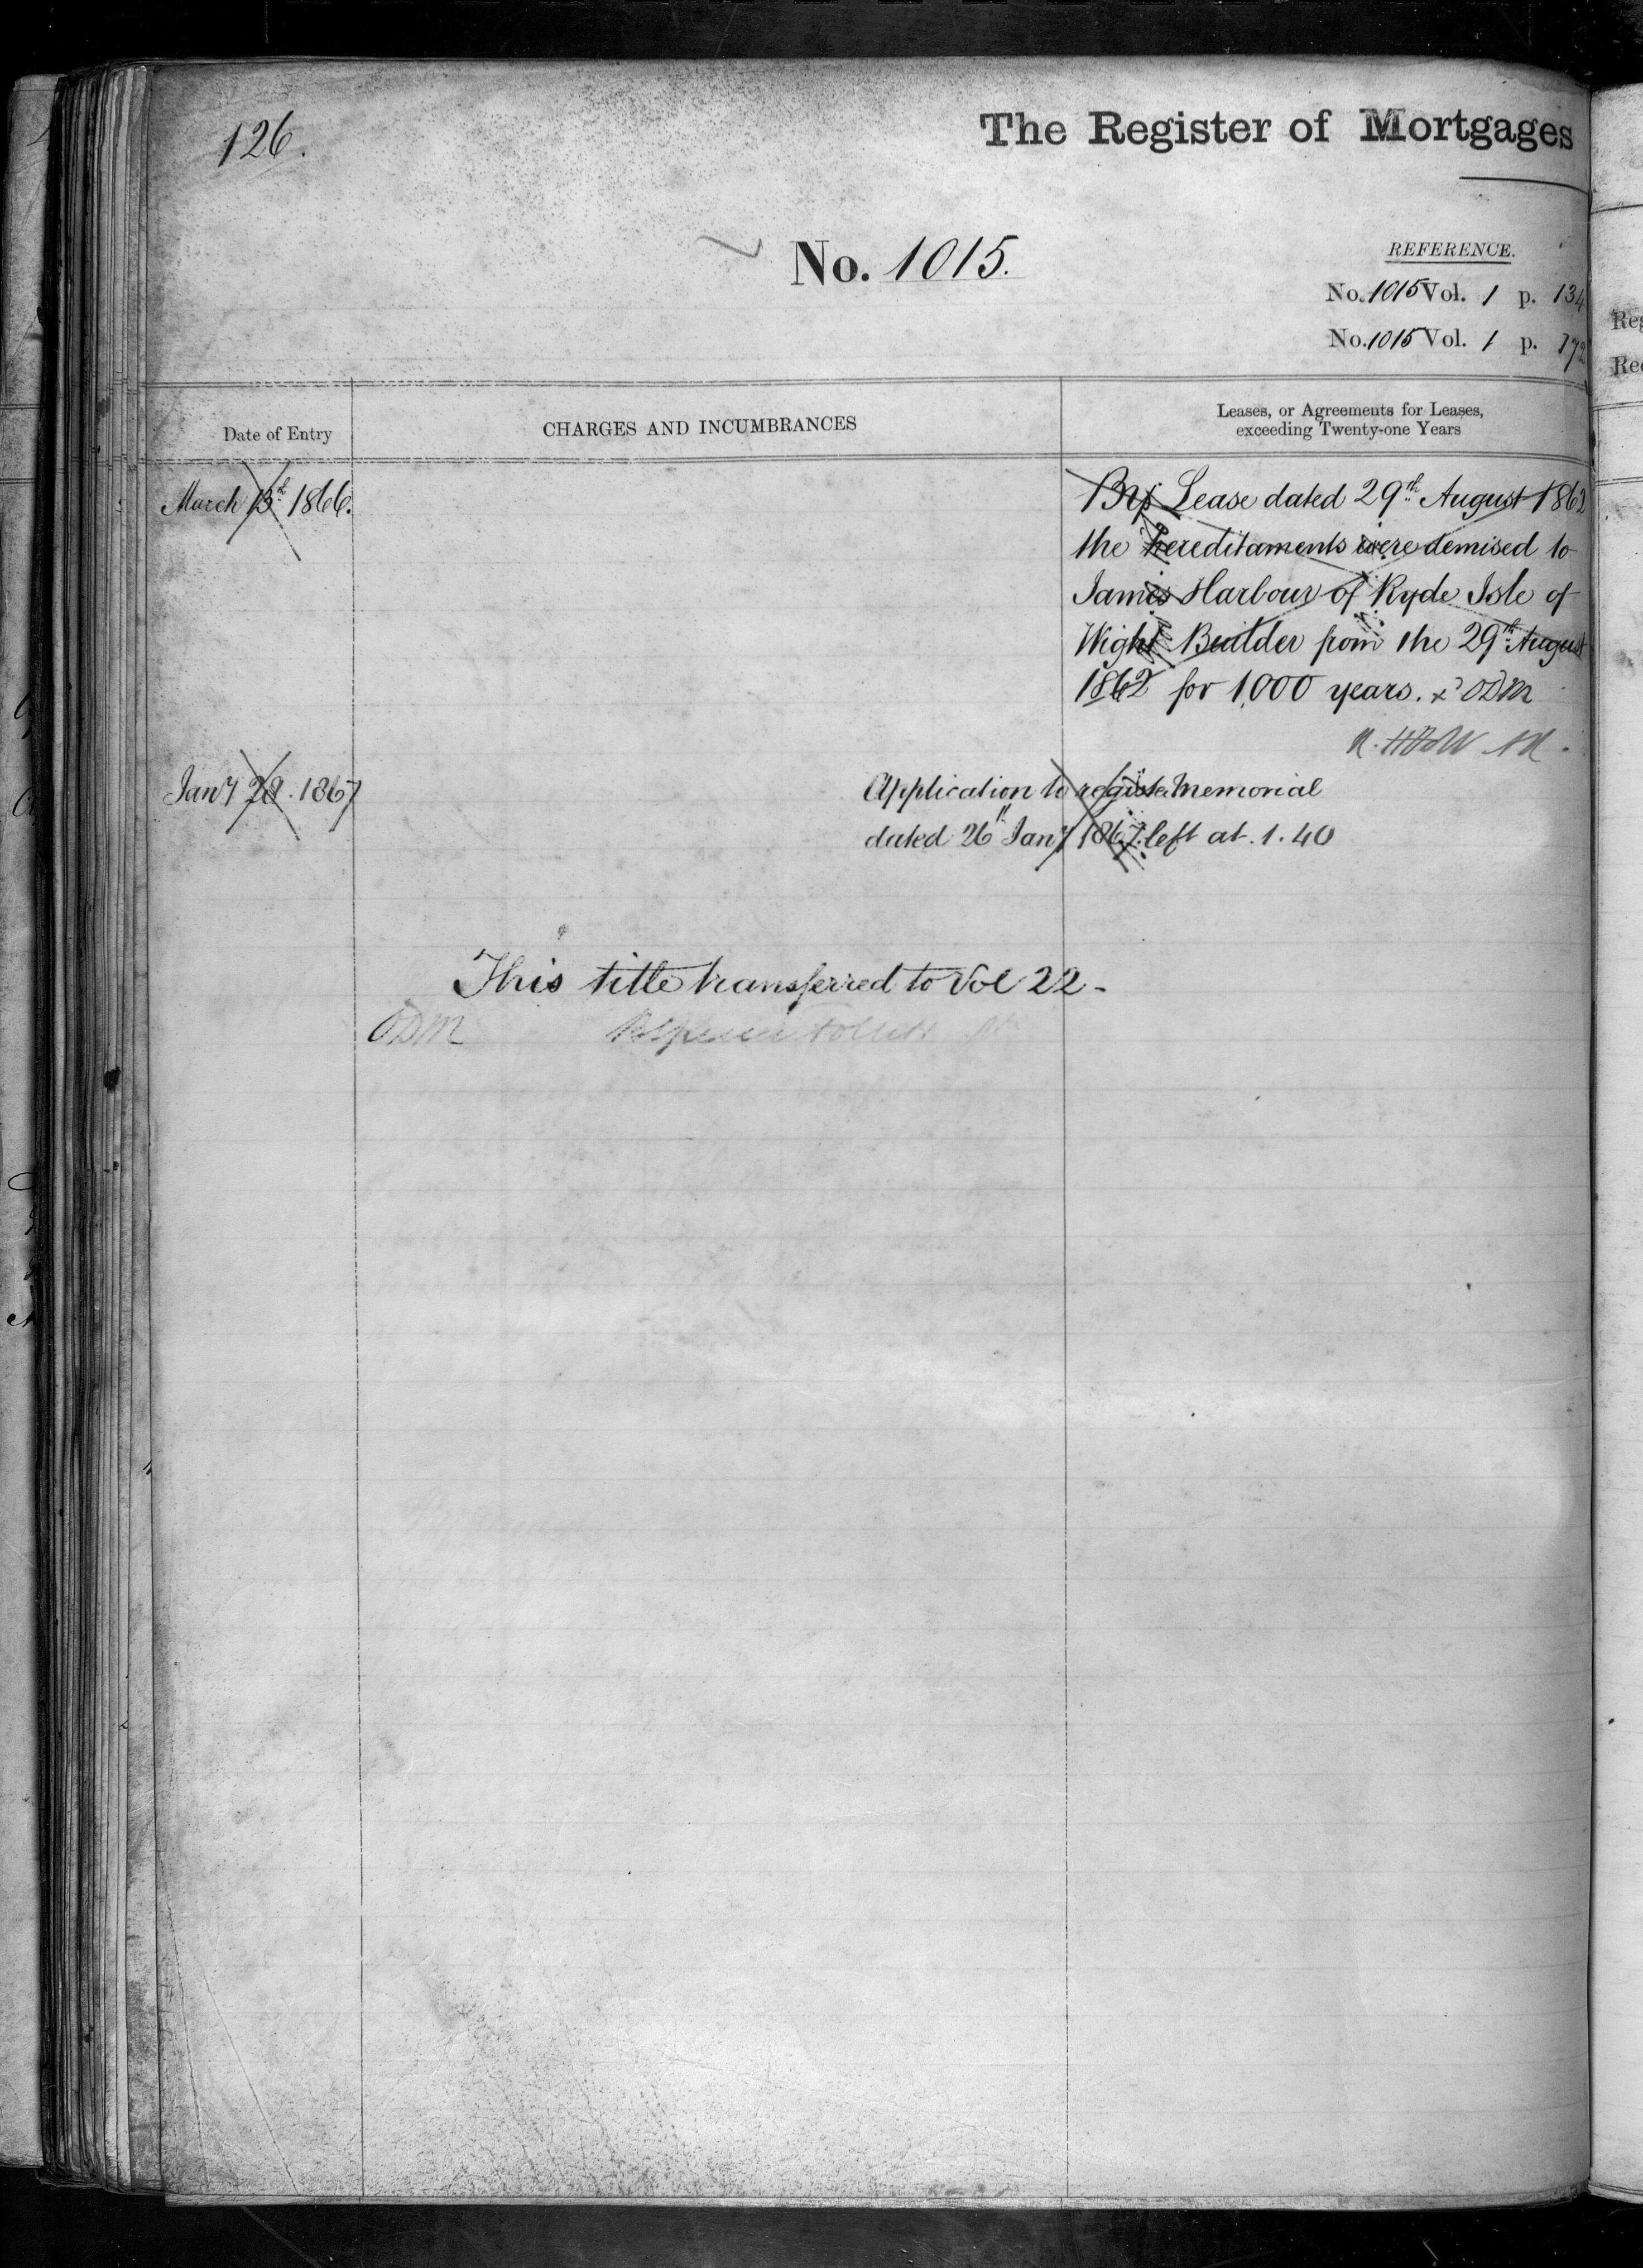 126.
The Register of Mortgages
No. 1015.
REFERENCE.
No. 1015 Vol. 1 p. 134
No. 1015 Vol. 1 p. 172
Date of Entry
CHARGES AND INCUMBRANCES
Leases, or Agreements for Leases,
exceeding Twenty-one Years
March 13th 1866.
By Lease dated 29th August 1862
the hereditaments were demised to
James Harbour of Ryde Isle of
Wight Builder from the 29th August
1862 for 1,000 years. ODM
Jany 28. 1867
Application to register Memorial
dated 26th Jany 1867. left at 1.40
This title transferred to Vol 22-
ODM